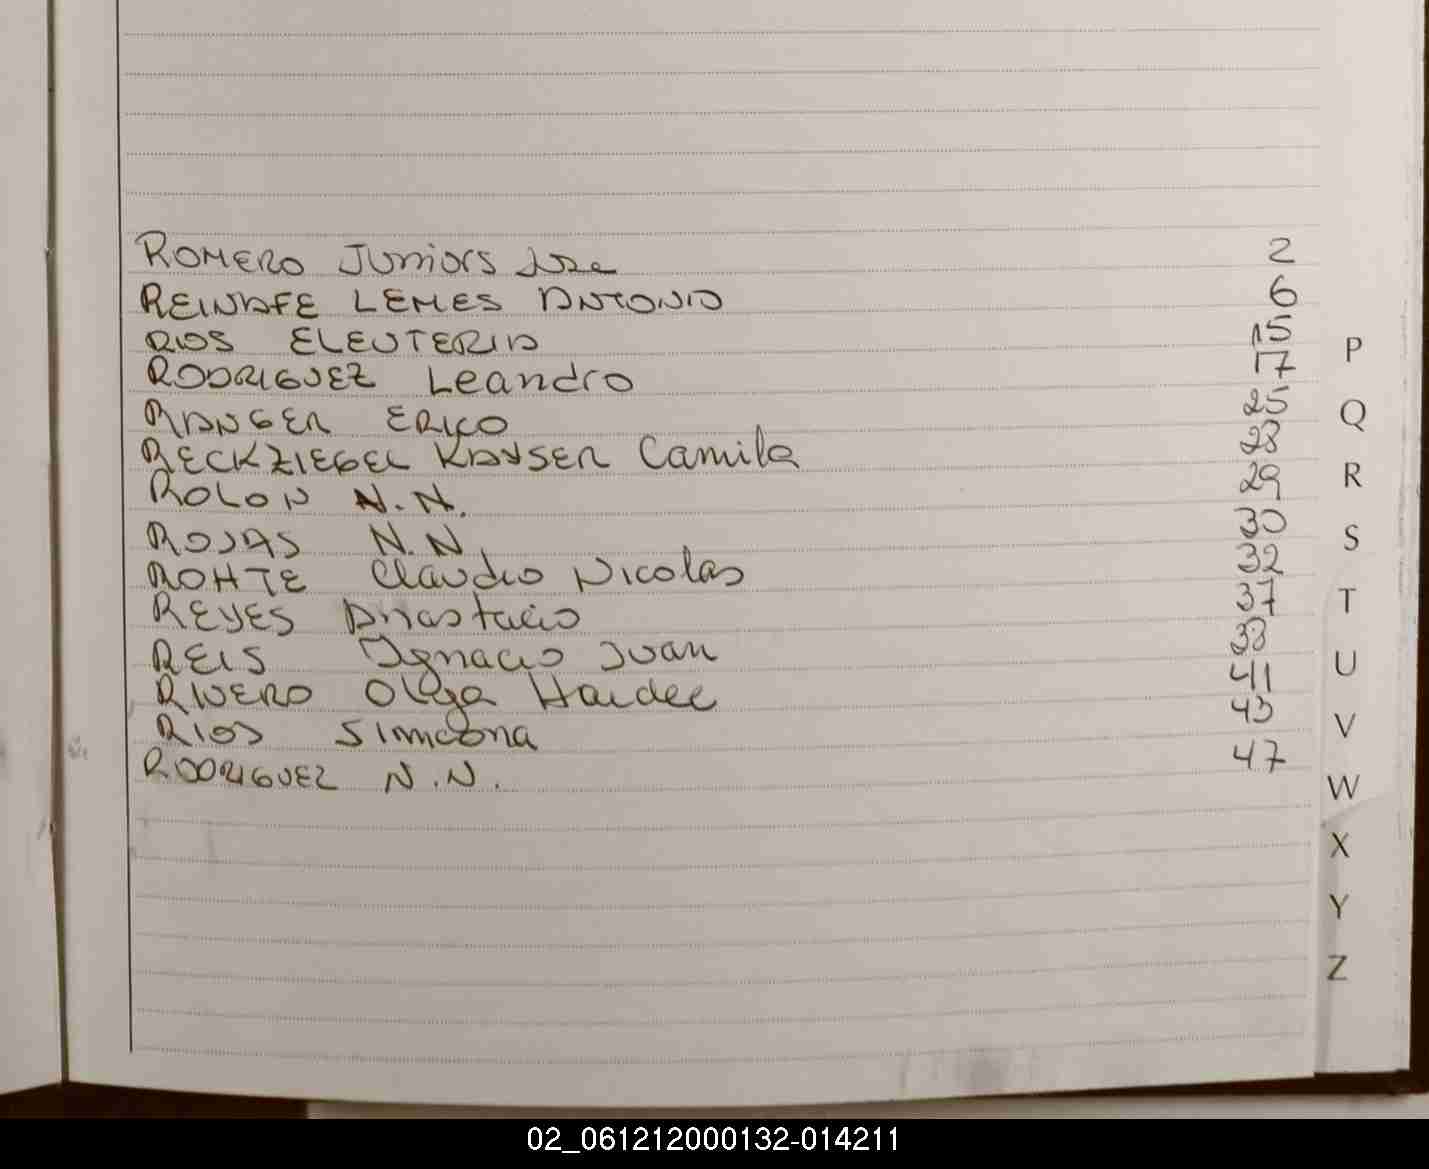 ROMERO Juniors Jose 2
REINAFE LEMES ANTONIO 6
RIOS ELEUTERIO 15
RODRIGUEZ Leandro 17
RANGER ERICO 25
RECKZIEGEL KAYSER Camila 28
ROLON N.N. 29
ROJAS N.N. 30
ROHTE Claudio Nicolas 32
REYES Anastacio 37
REIS Ignacio Juan 38
RIVERO Olga Haidee 41
RIOS Simeona 43
RODRIGUEZ N.N. 47
P
Q
R
S
T
U
V
W
X
Y
Z
02_061212000132-014211